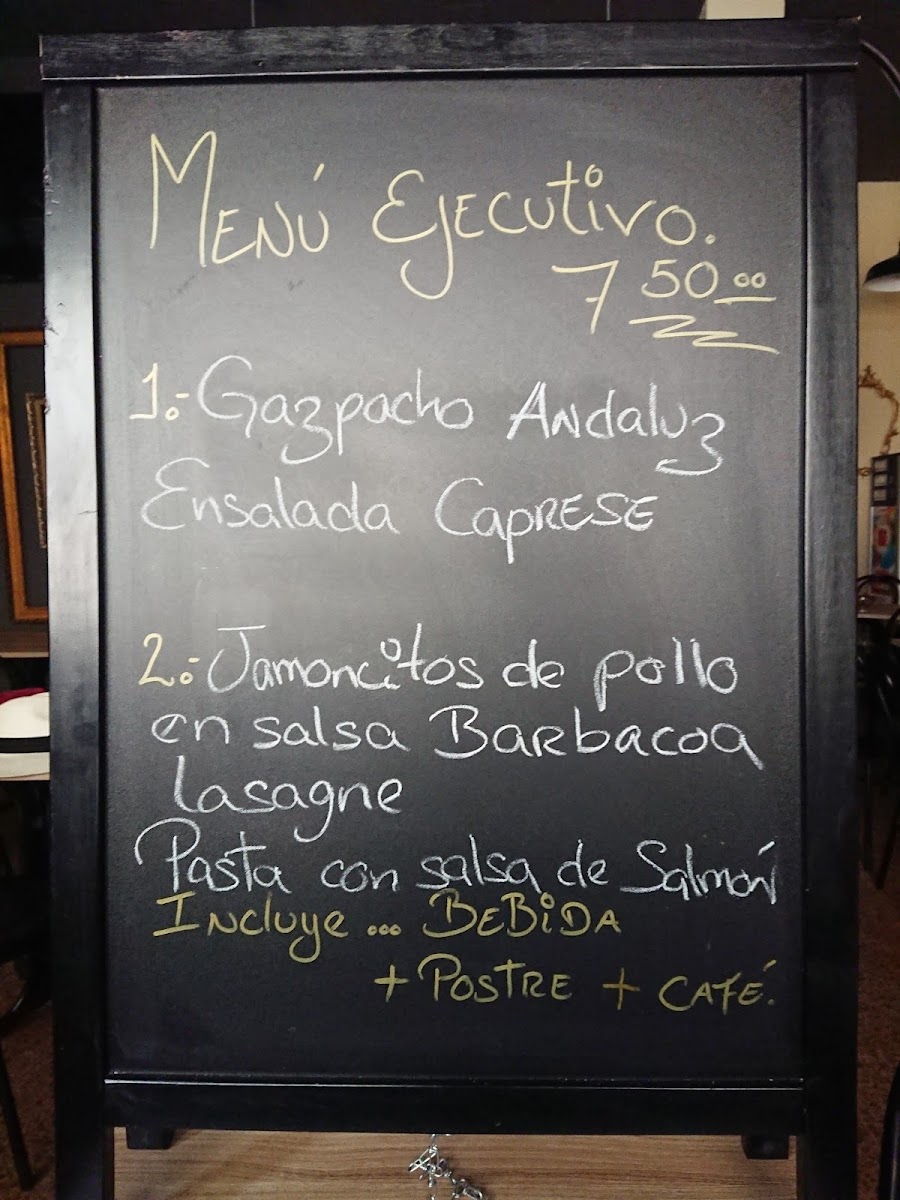 Menú Ejecutivo.
7 50.00
1.- Gazpacho Andaluz
Ensalada Caprese
2.- Jamoncitos de pollo
en salsa Barbacoa
lasagne
Pasta con salsa de Salmón
Incluye ... BEBIDA
+ POSTRE + CAFÉ.